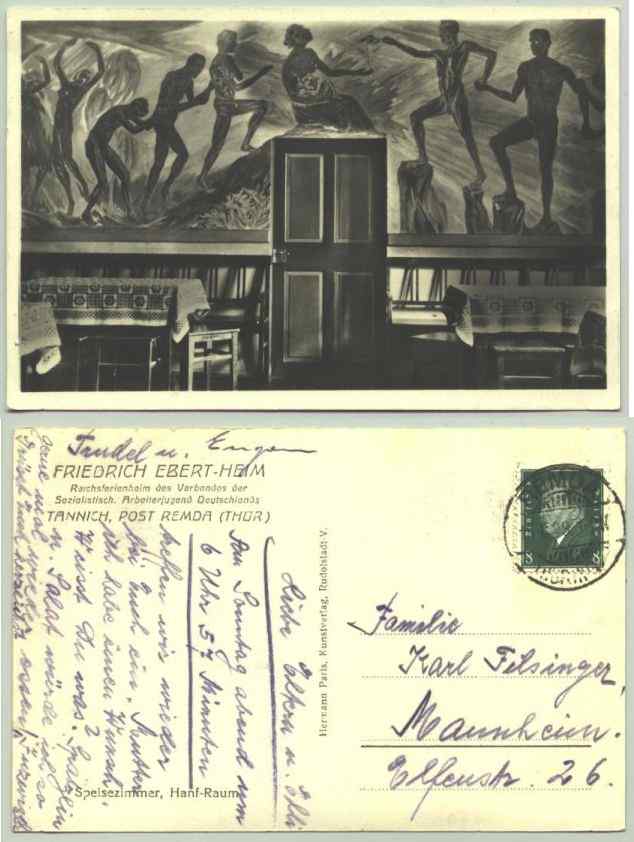 Trudel u. Eugen
FRIEDRICH EBERT-HEIM
Reichsferienheim des Verbandes der
Sozialistisch. Arbeiterjugend Deutschlands
TANNICH, POST REMDA (THÜR)
Liebe Eltern u.
Am Sonntag abend um
6 Uhr 57 Minuten
treffen wir wieder
bei Euch ein. Mutter
ich habe einen Wunsch.
Weisst Du was?
u. Salat würde ich so
gerne mal wieder essen!
Speisezimmer, Hanf-Raum
Hermann Paris, Kunstverlag, Rudolstadt-V.
8 8
Familie
Karl Filsinger,
Mannheim.
Elfenstr. 26.